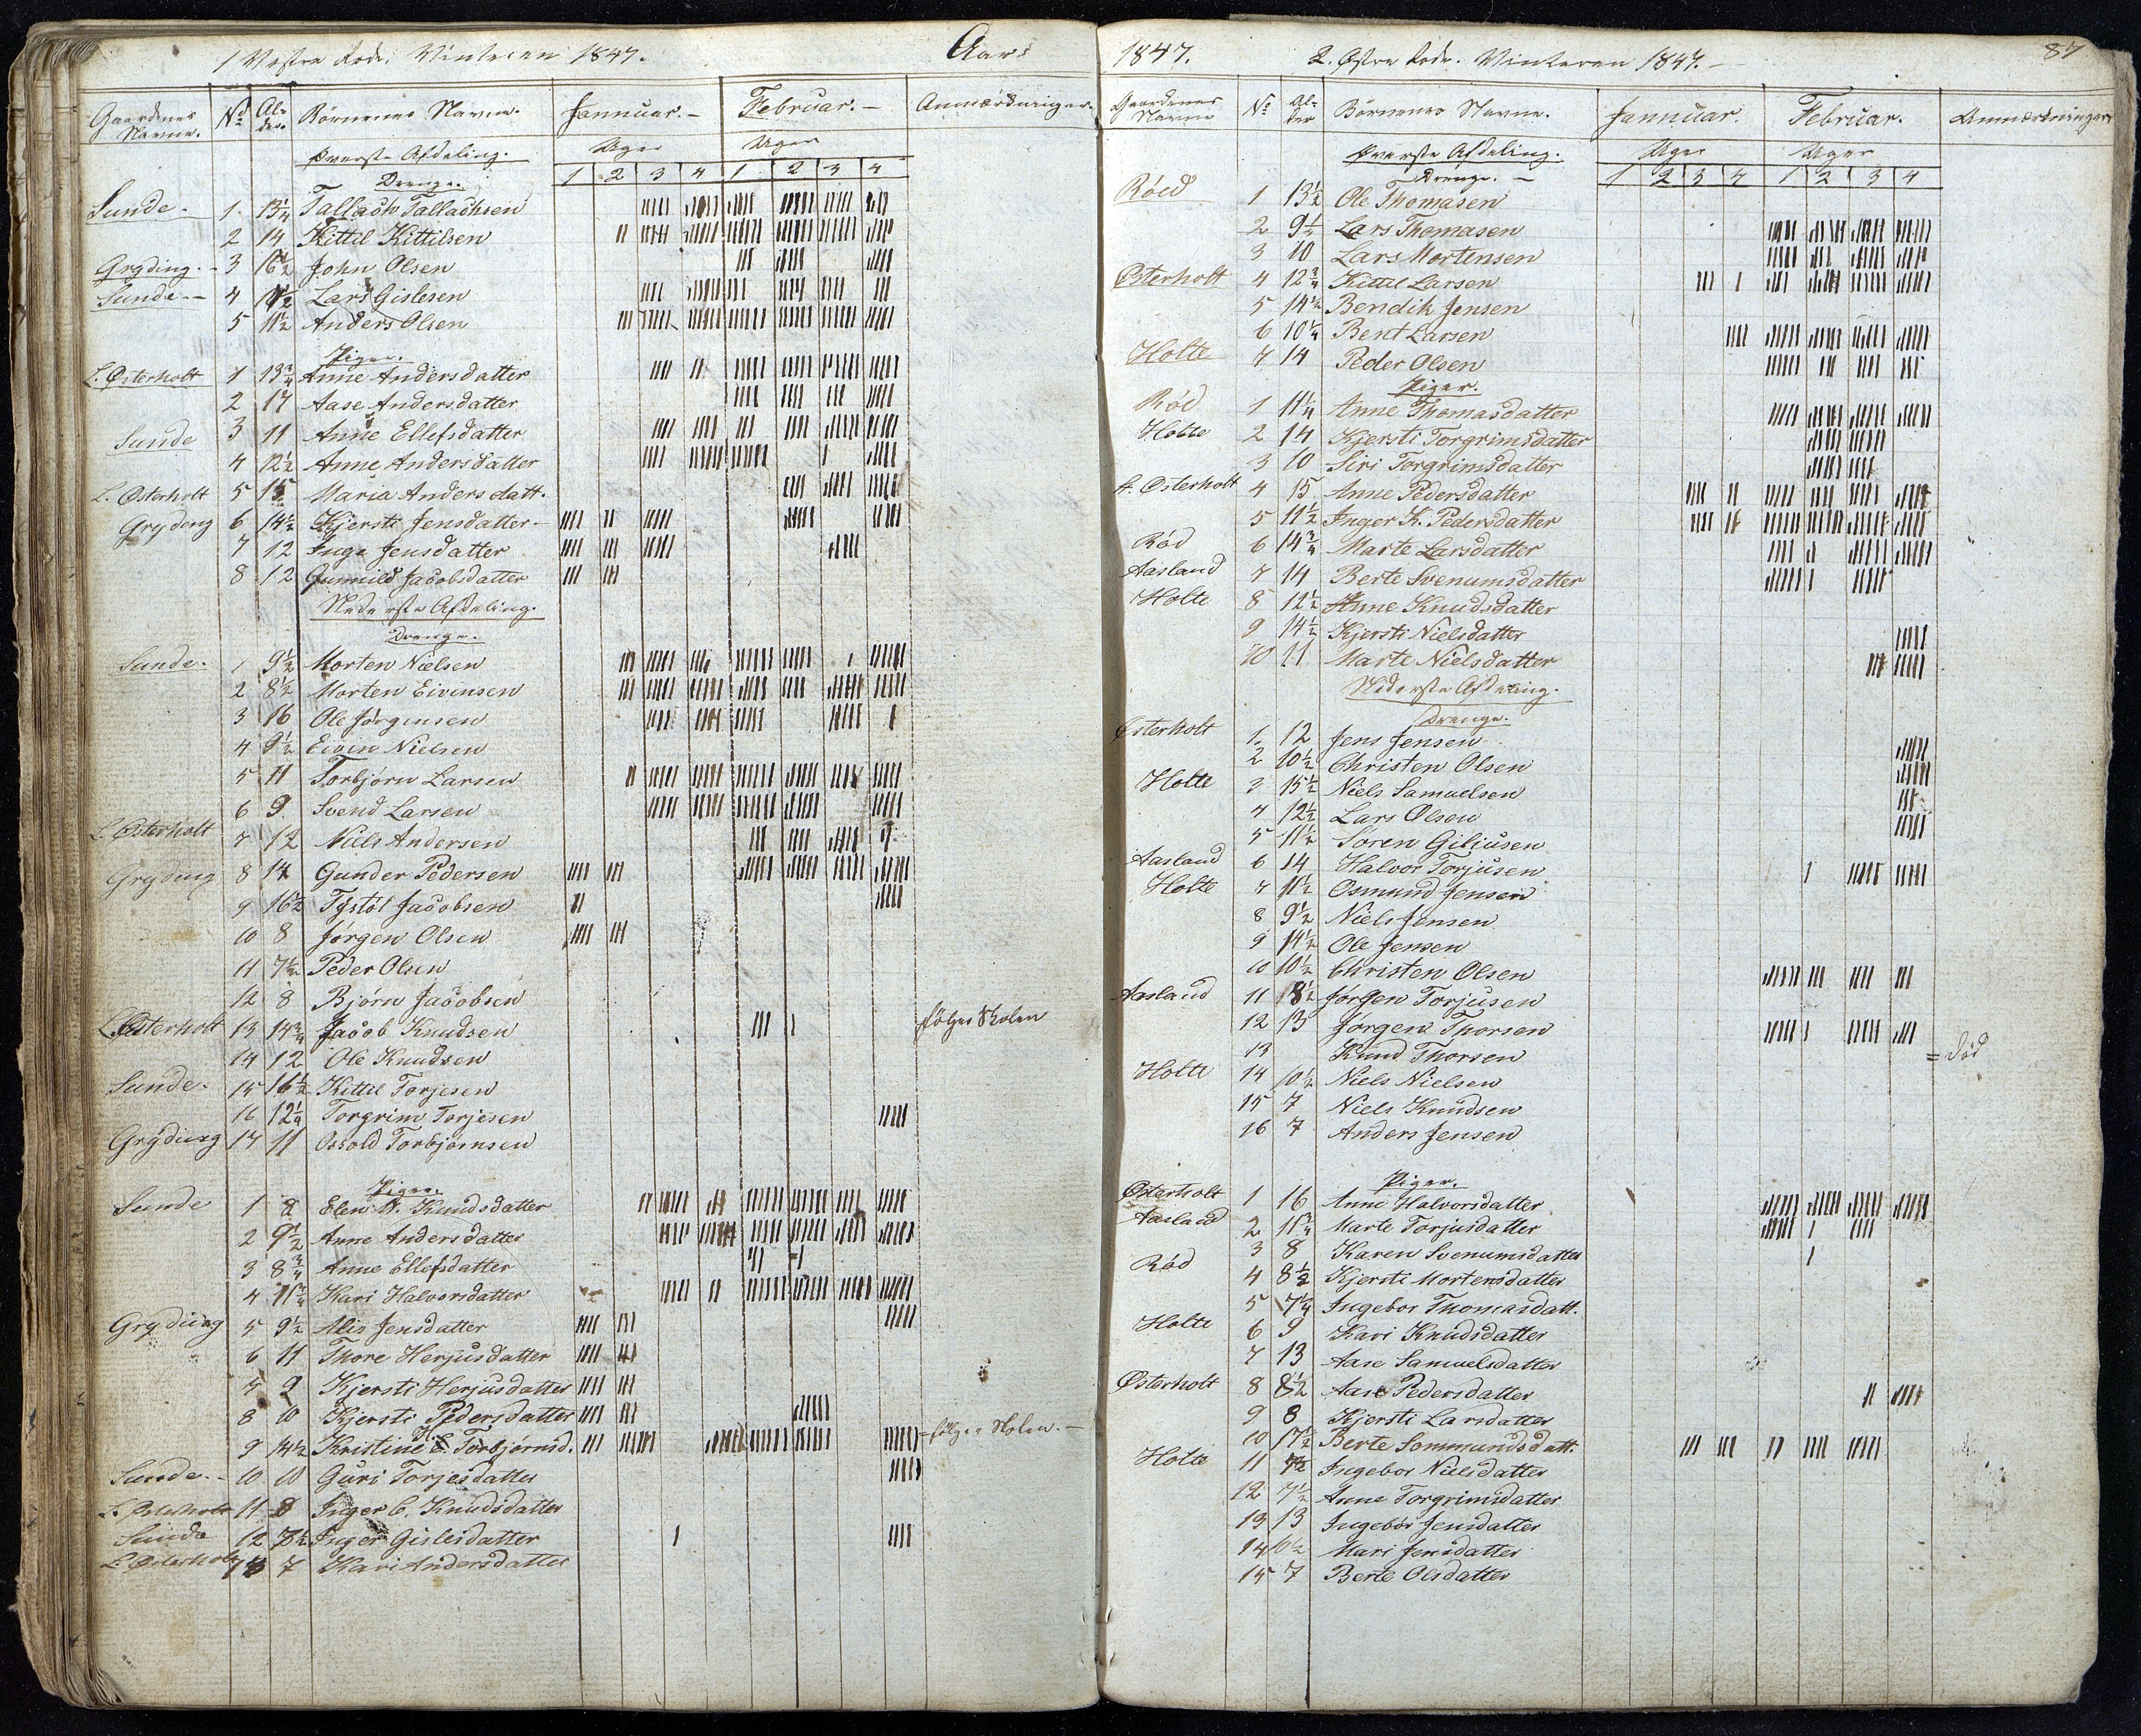 1 Vestre Rode. Vinteren 1847. Aar
Gaardenes Navne. No Alder. Børnenes Navne. Januar. Februar. Anmærkninger
Øverste Afdeling. Uger Uger
Drenge. 1 2 3 4 1 2 3 4
Sunde 1. 13 1/4 Tallach Tallachsen
2 14 Kittil Kittilsen
Gryding 3 16 1/2 John Olsen
Sunde 4 11 1/2 Lars Gislesen
5 11 1/2 Anders Olsen
Piger.
L. Østerholt 1 13 3/4 Anne Andersdatter
2 17 Aase Andersdatter
Sunde 3 11 Anne Ellefsdatter
4 12 1/2 Anne Andersdatter
L. Østerholt 5 15 Maria Andersdatt.
Gryding 6 14 1/2 Kjersti Jensdatter
7 12 Inge Jensdatter
8 12 Gunnild Jacobsdatter
Nederste Afdeling.
Drenge.
Sunde 1 9 1/2 Morten Nielsen
2 8 1/2 Morten Eivensen
3 16 Ole Jørgensen
4 9 1/2 Eiven Nielsen
5 11 Torbjørn Larsen
6 9 Svend Larsen
L. Østerholt 7 12 Niels Andersen
Gryding 8 14 Gunder Pedersen
9 16 1/2 Tystøl Jacobsen
10 8 Jørgen Olsen
11 7 1/2 Peder Olsen
12 8 Bjørn Jacobsen
L. Østerholt 13 14 3/4 Jacob Knudsen følger Skolen
14 12 Ole Knudsen
Sunde 15 16 1/2 Kittil Torjesen
16 12 1/4 Torgrim Torjesen
Gryding 17 11 Osold Torbjørnsen
Piger.
Sunde 1 8 Elen A. Knudsdatter
2 9 1/2 Anne Andersdatter
3 8 3/4 Anne Ellefsdatter
4 11 3/4 Kari Halvorsdatter
Gryding 5 9 1/2 Alis Jensdatter
6 11 Thore Herjusdatter
7 9 Kjersti Herjusdatter
8 10 Kjersti Pedersdatter
9 14 1/2 Kristine E. Torbjørnsd. følger Skolen.
Sunde 10 10 Guri Torjesdatter
L. Østerholt 11 8 Inger C. Knudsdatter
Sunde 12 7 1/2 Inger Gislesdatter
L. Østerholt 13 7 Kari Andersdatter
1847. 2. Østre Rode. Vinteren 1847. 87
Gaardenes Navne No Alder Børnenes Navne. Januar. Februar. Anmærkninger
Øverste Afdeling. Uger Uger
Drenge. 1 2 3 4 1 2 3 4
Røed 1 13 1/2 Ole Thomasen
2 9 1/2 Lars Thomasen
3 10 Lars Mortensen
Østerholt 4 12 3/4 Kittel Larsen
5 14 1/2 Bendik Jensen
6 10 1/4 Bent Larsen
Holte 7 14 Peder Olsen
Piger.
Rød 1 11 1/4 Anne Thomasdatter
Holte 2 14 Kjersti Torgrimsdatter
3 10 Siri Torgrimsdatter
Østerholt 4 15 Anne Pedersdatter
5 11 1/2 Inger K. Pedersdatter
Rød 6 14 3/4 Marte Larsdatter
Aasland 7 14 Berte Svenumsdatter
Holte 8 12 1/2 Anne Knudsdatter
9 14 1/2 Kjersti Nielsdatter
10 11 Marte Nielsdatter
Nederste Afdeling.
Drenge.
Østerholt 1. 12 Jens Jensen
2 10 1/2 Christen Olsen
Holte 3 15 1/2 Niels Samuelsen
4 12 1/2 Lars Olsen
5 11 1/2 Søren Giliusen
Aasland 6 14 Halvor Torjusen
Holte 7 11 1/2 Osmund Jensen
8 9 1/2 Niels Jensen
9 14 1/2 Ole Jensen
10 10 1/2 Christen Olsen
Aasland 11 8 1/2 Jørgen Torjusen
12 13 Jørgen Thorsen
13 Knud Thorsen = død
Holte 14 10 1/2 Niels Nielsen
15 7 Niels Knudsen
16 7 Anders Jensen
Piger.
Østerholt 1 16 Anne Halvorsdatter
Aasland 2 11 3/4 Marte Torjusdatter
3 8 Karen Svenumsdatter
Rød 4 8 1/2 Kjersti Mortensdatter
5 7 1/4 Ingebor Thomasdatt.
Holte 6 9 Kari Knudsdatter
7 13 Aase Samuelsdatter
Østerholt 8 8 1/2 Aase Pedersdatter
9 8 Kjersti Larsdatter
10 17 1/2 Berte Sommundsdatt.
Holte 11 7 1/2 Ingebor Nielsdatter
12 7 1/2 Anne Torgrimsdatter
13 13 Ingebør Jensdatter
14 10 1/2 Mari Jensdatter
15 7 Berte Olsdatter